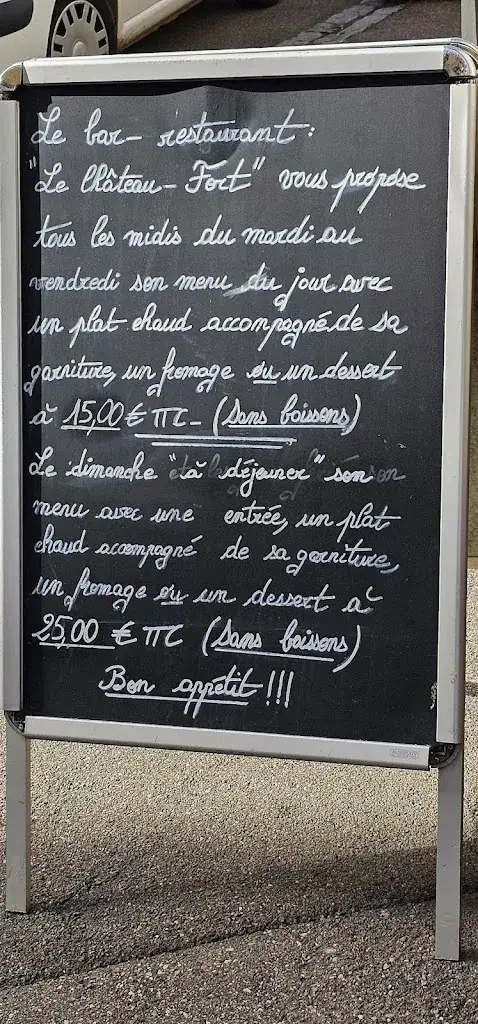 Le bar- restaurant:
"Le Château-Fort" vous propose
tous les midis du mardi au
vendredi son menu du jour avec
un plat chaud accompagné de sa
garniture, un fromage ou un dessert
à 15,00 € TTC - (Sans boissons)
Le dimanche "à déjeuner" son
menu avec une entrée, un plat
chaud accompagné de sa garniture,
un fromage ou un dessert à
25,00 € TTC (Sans boissons)
Bon appétit !!!